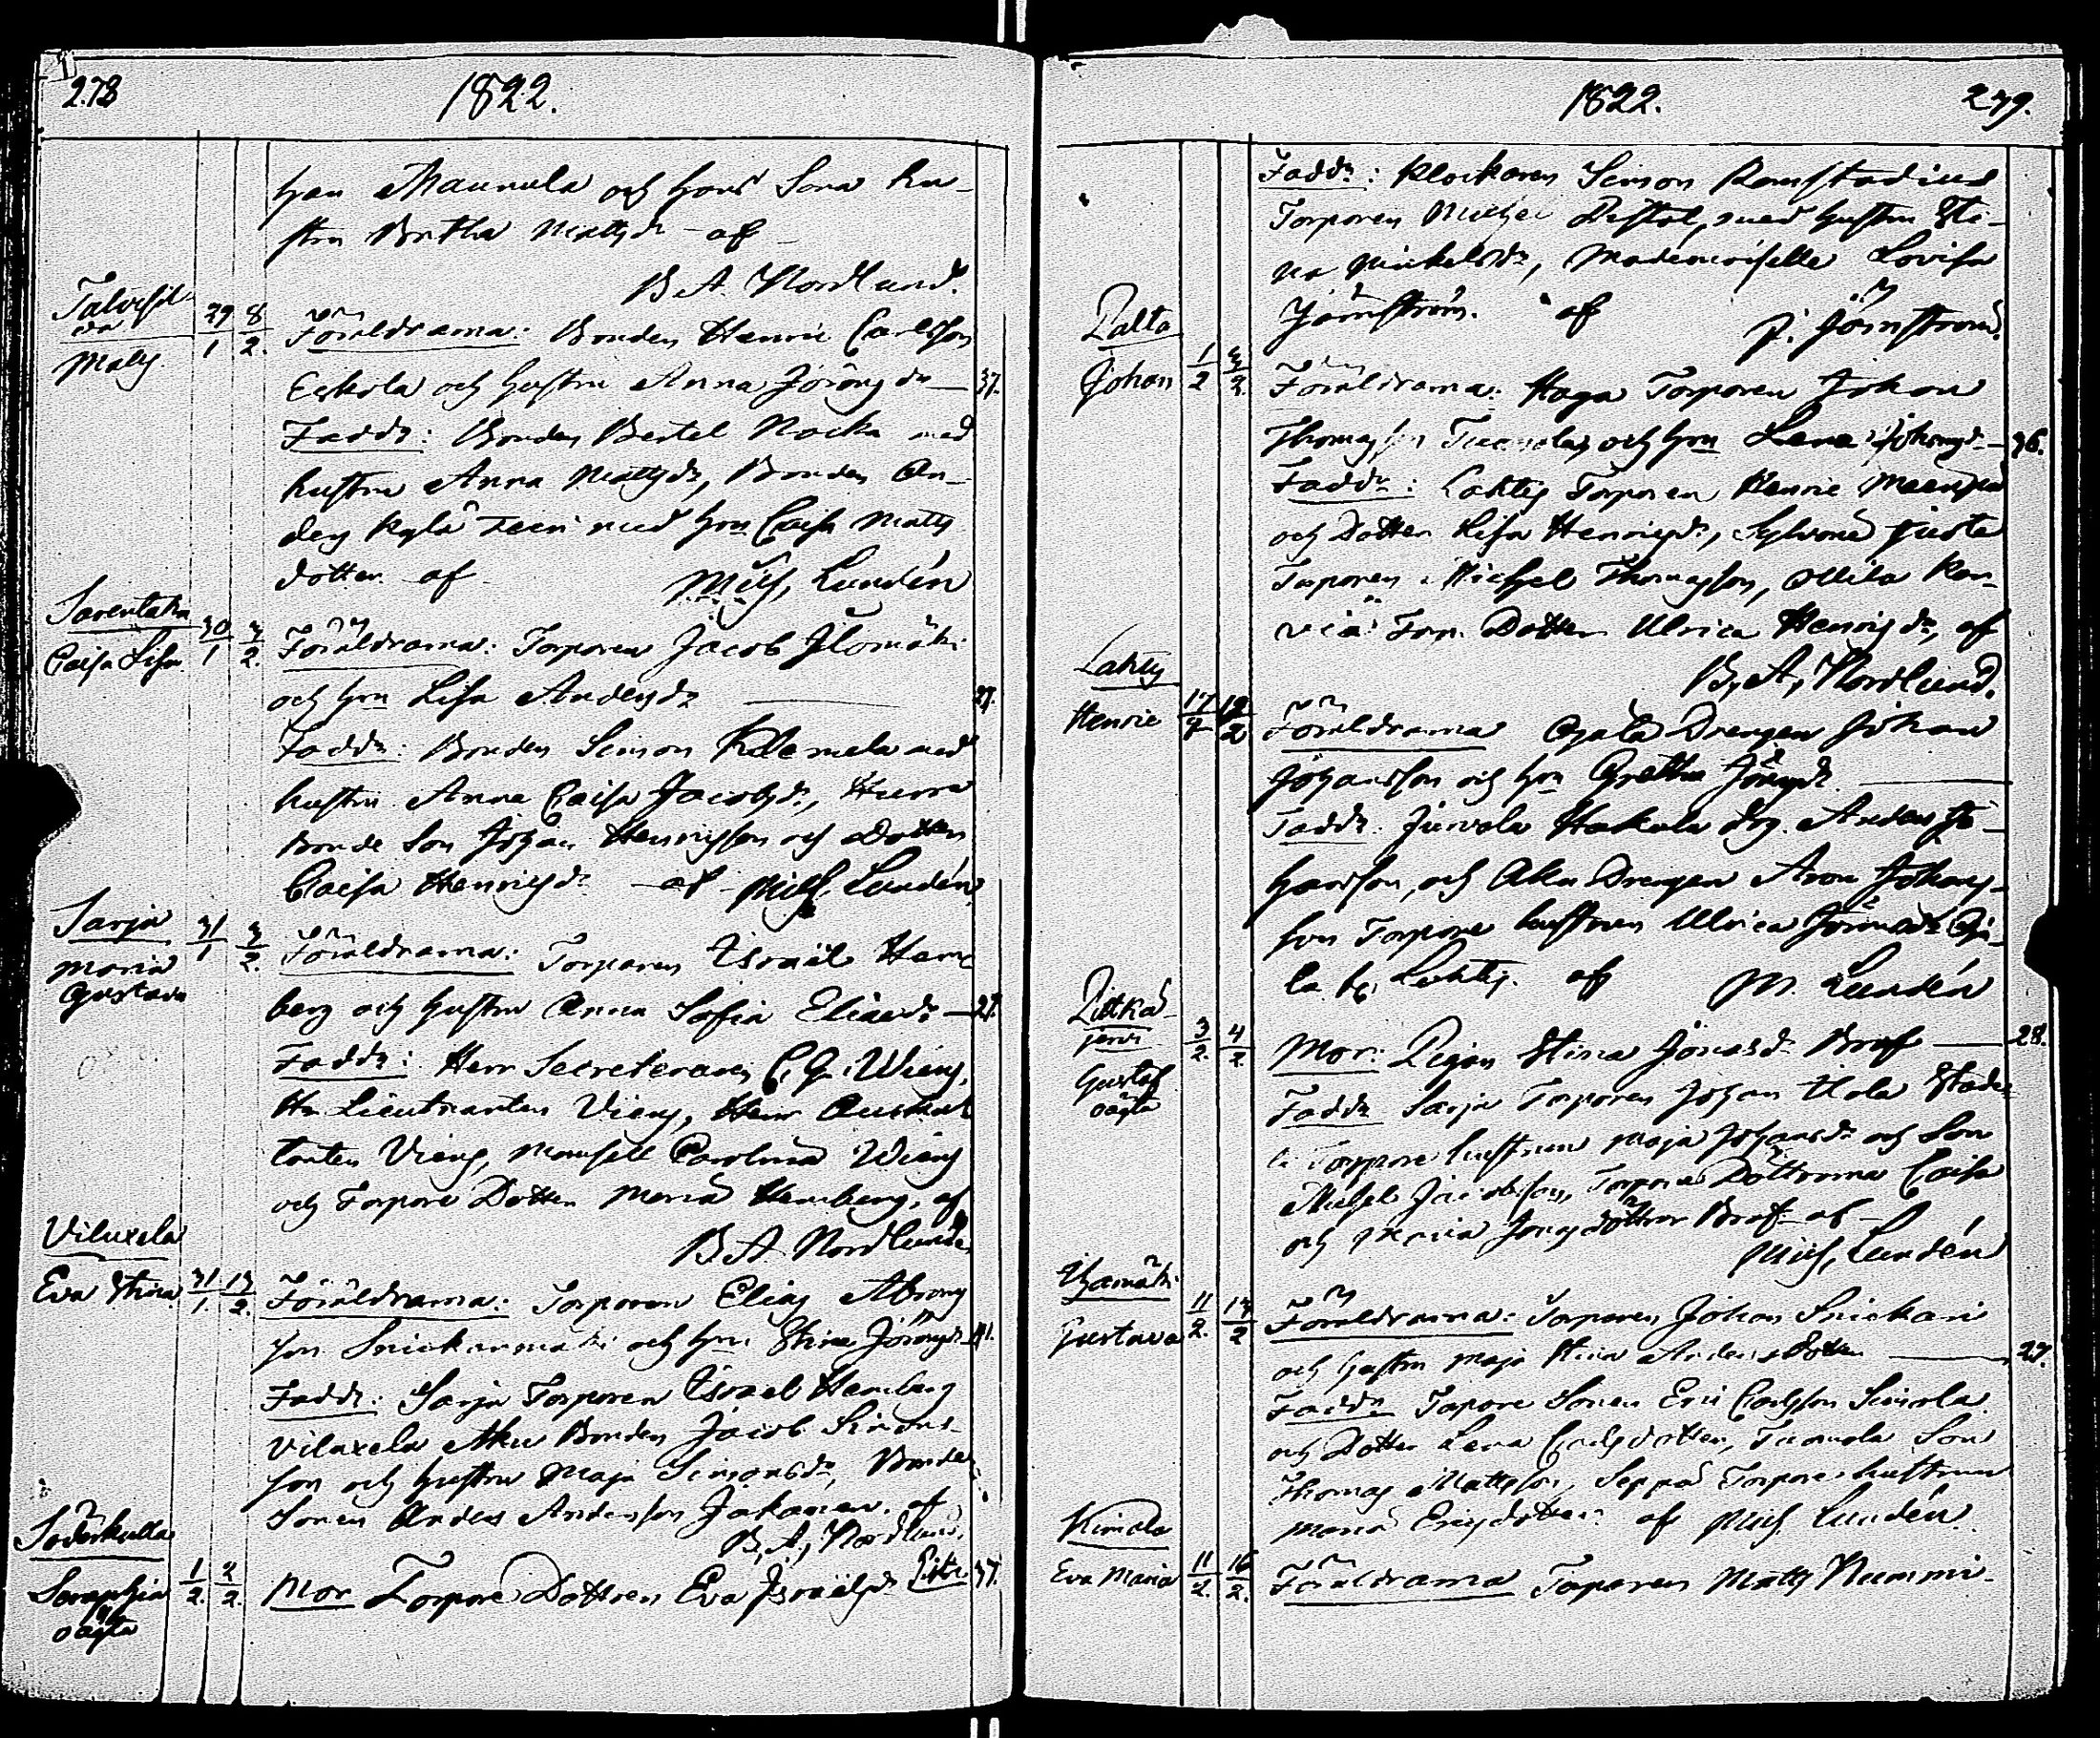 278
1822.
han Maunula och hans Sona hu-
stru Bertha Mattsdr af
B. A. Nordlund.
Talvisil-
Matts
29/1 8/2.
Föräldrarna: Bonden Henric Carlsson
Eskola och hustru Anna Jöransdr — 37.
Faddr: Bonden Bertel Nocka med
hustru Anna Mattsdr, Bonden An-
ders Kylä med hru Caisa Matts
dotter af Mich. Lundén
Sarentaka
Caisa Lisa
30/1 3/2.
Föräldrarna: Torparen Jacob Ilomäki
och hru Lisa Andersdr — 27.
Faddr: Bonden Simon Klemela med
hustru Anna Caisa Jacobsdr,
Bonde Son Johan Henricsson och Dotter
Caisa Henricsdr af Mich. Lundén
Sarja
Maria
Gustava
31/1 3/2.
Föräldrarna: Torparen Israël Ham-
berg och hustru Anna Sofia Eliaedr — 27.
Faddr: Herr Secreteraren C. G. Wieng,
Hr Lieutnanten Vieng, Herr Auskul
tanten Vieng, Mamsell Carolina Wieng
och Torpare Dotter Maria Hamberg, af
B. A. Nordlund
Viluxela
Eva Stina
31/1 13/2.
Föräldrarna: Torparen Elias Abrams
son Snickarmäki och hru Stina Jöransdr — 41.
Faddr: Sarja Torparen Israel Hamberg
Viluxela Aku Bonden Jacob Simons-
son och hustru Maja Simonsdr, Bonde
Sonen Anders Andersson Jakanen. af
B. A. Nordlund.
Söderkulla
Seraphia
oägta
1/2. 2/2.
Mor Torpare Dottren Eva Israëlsdr 37.
1822.
279.
Faddr: Klockaren Simon Ramstadius
Torparen Michel Pistol, med hustru Sti-
na Mickelsdr, Mademoiselle Lovisa
Järnström. af J. Järnström.
Palta
Johan
1/2 3/2.
Föräldrarna: Haga Torparen Johan
Thomasson Tuomola, och hru Lena Johansd. — 36.
Faddr: Lahtis Torparen Henric Meenpää
och Dotter Lisa Henricsdr, Sylvänä
Torparen Michel Thomasson, Ollila
Torp. Dotter Ulrica Henricsdr, af
B. A. Nordlund.
Lahtis
Henric
17/2 19/2
Föräldrarna Ojala Drengen Johan
Johansson och hru Gretha Jöransdr —
Faddr: Jurvala Hakula drg. Anders Jo-
hansson, och Aku Drengen Aron Johans-
son Torpare hustrun Ulrica Jöransdr Oja-
la fr. Lahtis. af M. Lundén
Pitkä-
jervi
Gustaf
oägta
3/2. 4/2.
Mor: Pigan Stina Jonasdr Braf — 28.
Faddr Sarja Torparen Johan Uola
Torpare hustrun Maja Johansdr och Son
Michel Jacobsson, Torpare Döttrarna Caisa
och Maria Jonasdöttrar Braf af
Mich. Lundén
Gustava
11/2. 17/2
Föräldrarna: Torparen Johan Snickari
och hustru Maja Stina Andersdotter — 27.
Faddr Torpare Sonen Eric Carlsson Simola
och Dotter Lena Carlsdotter, Tuomola Son
Thomas Mattsson, Seppä Torpare hustrun
Maria Ericsdotter af Mich. Lundén
Kimala
Eva Maria
11/2. 16/2.
Föräldrarna Torparen Matts Nummi-